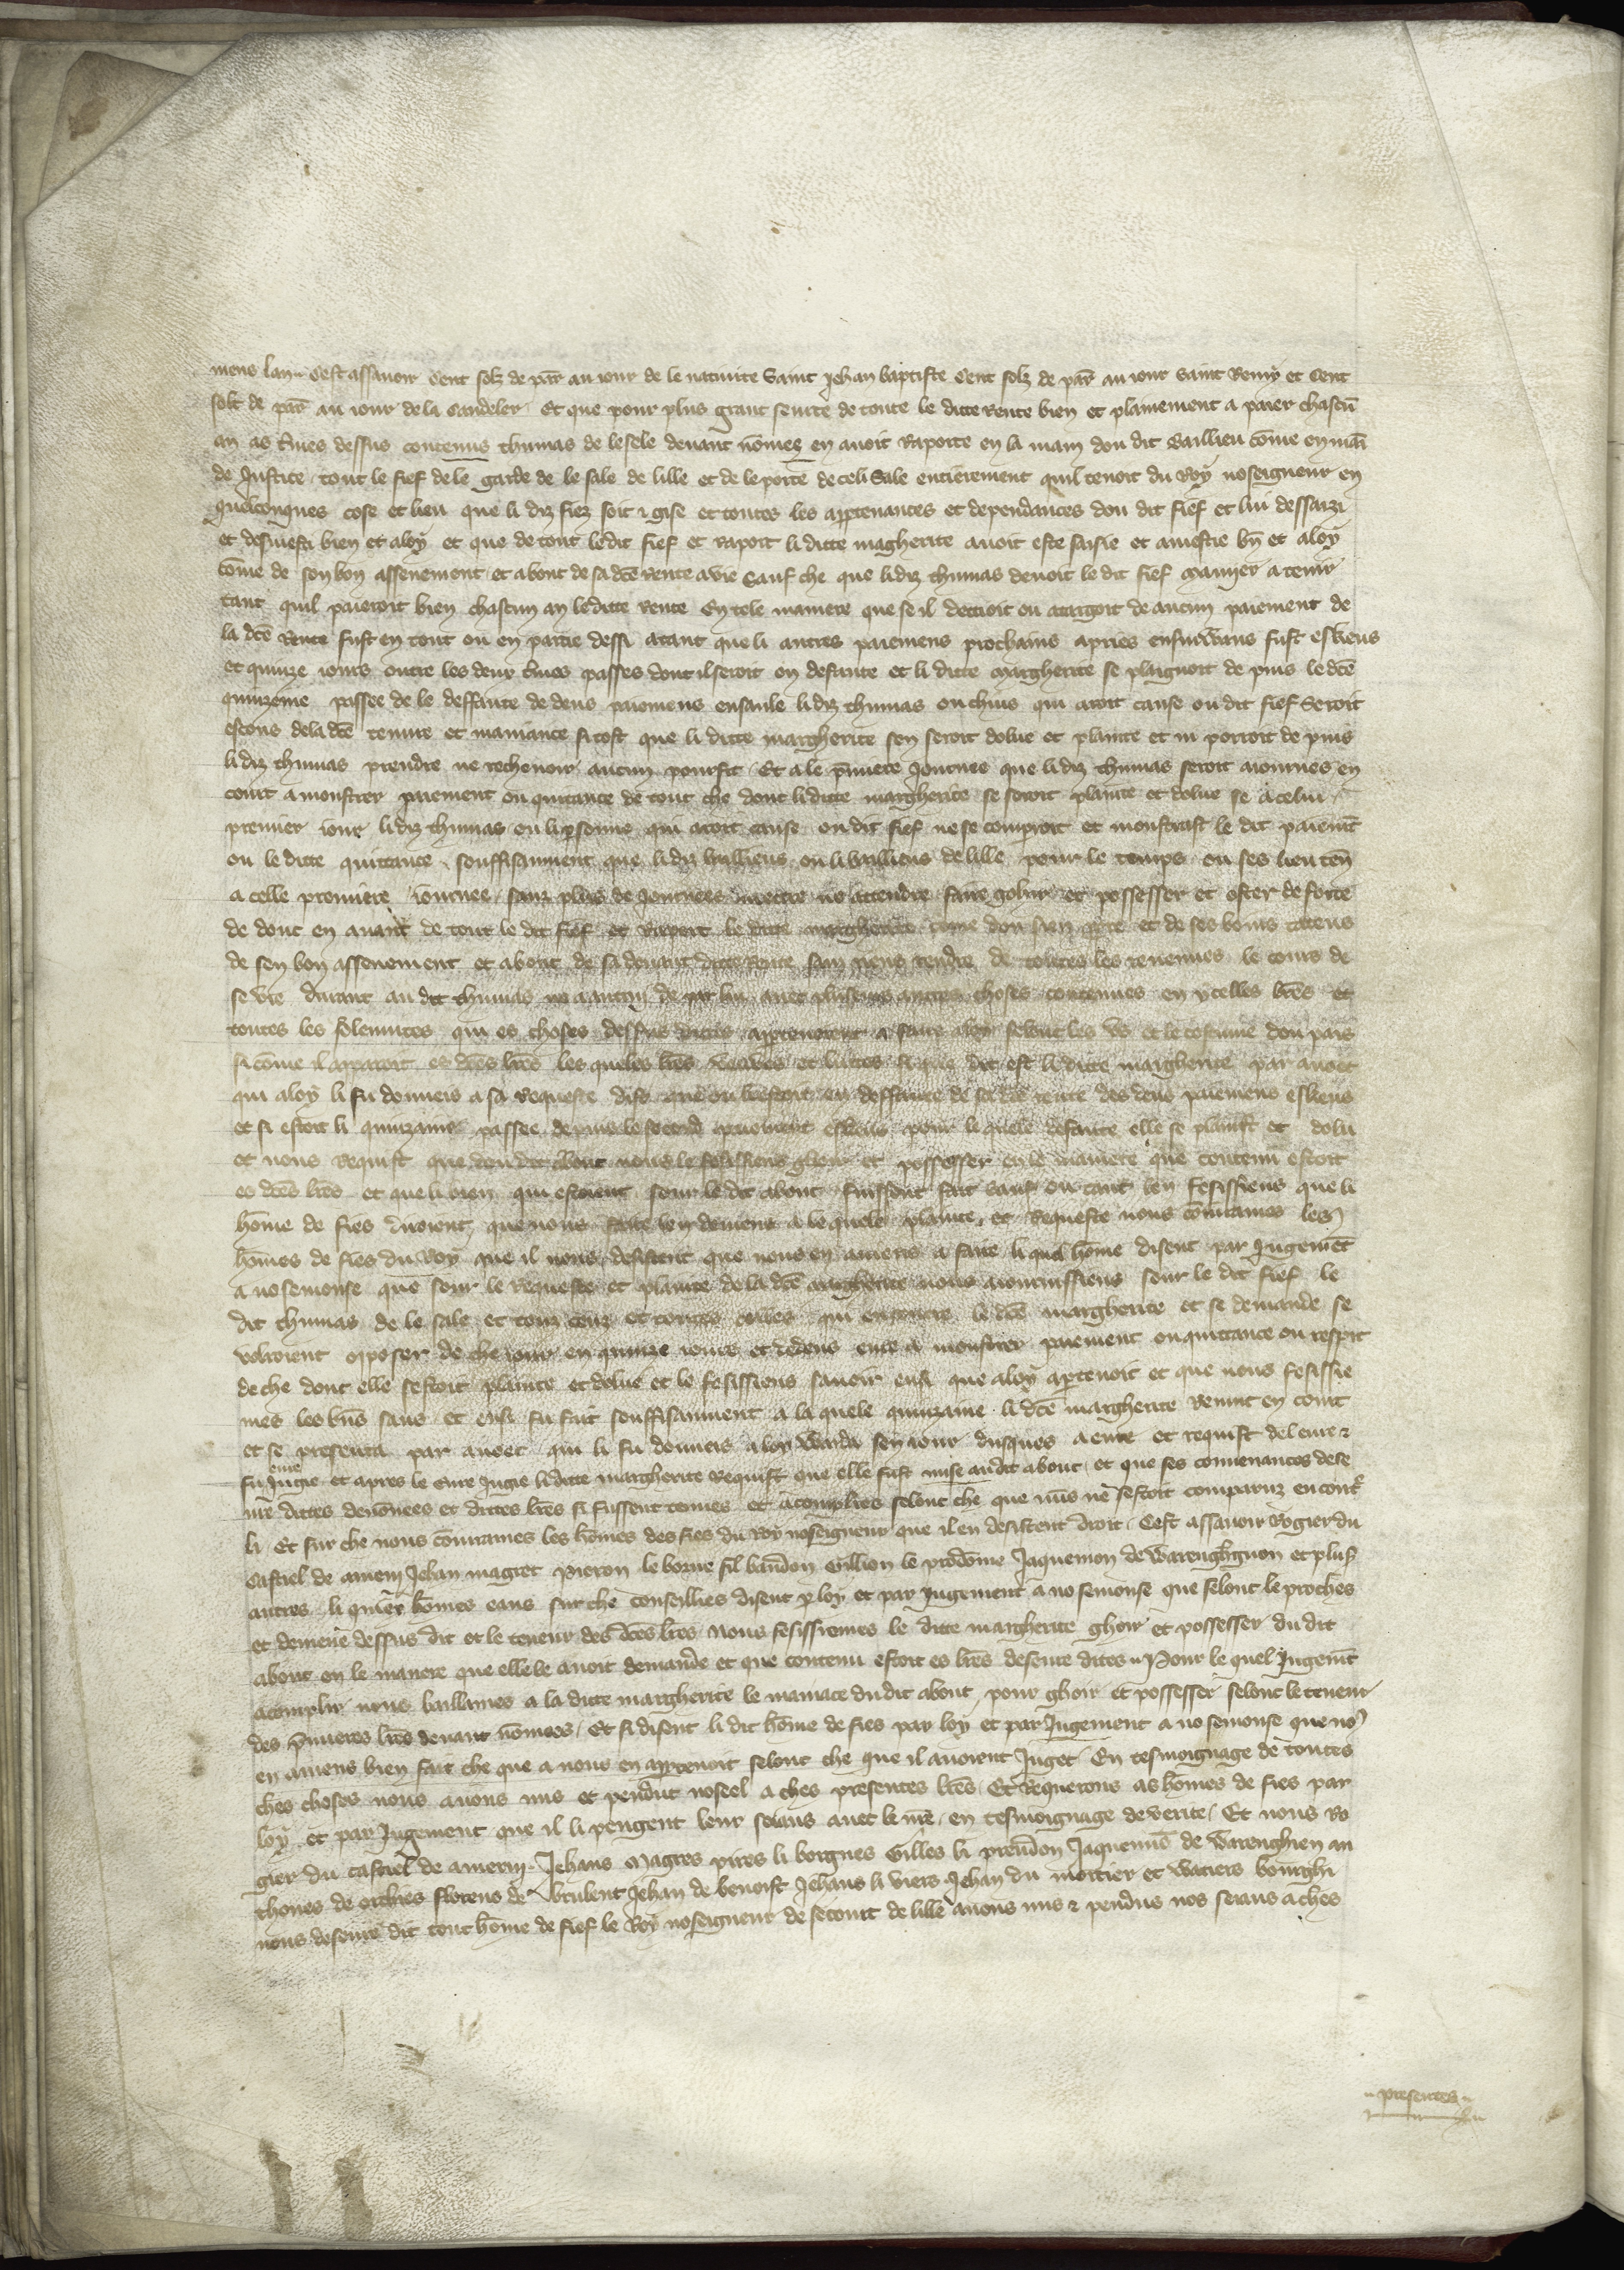 mens lan cest assavoir Cent solz de par̄ au jour de le nativite Saint Jehan baptiste Cent solz de par̄ au jour saint Remy et Cent
solz de par̄ au jour de la Candeler Et que pour plus grant seurte de toute le ditte Rente bien et plainement a paier chascū
an as t̄mes dessus contenus thumas de lesele devant nōmez en avoit Raporte en la main dou dit Baillieu cōme en mai
de Justice tout le fief de le garde de le sale de lille et de le porte de celi Sale entierement quil tenoit du Roy no seigneur en
quelconques cose et lieu que li diz fiez soit et gise et toutes les apptenances et dependances dou dit fief et lui dessaizi
et desviesti bien et a loy et que de tout ledit fief et raport li ditte magherite avoit este saisie et aviestie bn̄ et a loy
cōme de son bon assenement et about de sa dc̄e Rente a vie Sauf che que li diz thumas devoit le dit fief manyer a tenir
tant quil paieroit bien chascun an leditte rente En tele maniere que se il deffioit ou atargoit de aucun paiement de
la dc̄e Rente fust en tout ou en partie dessi atant que li autres paiemens prochains apries ensuiwans fust eskeus
et quinze jours outre les deux t̄mes passes dont il seroit en defaute et li ditte Margherite se plaignoit de puis le dc̄e
quinzeine passee de le deffaute de deus paiemens ensanle li diz thumas ou chius qui aroit cause ou dit fief Seroit
escous de la dc̄e tenure et maniance si tost que li ditte margherite sen seroit dolue et plainte et ni porroit de puis
li diz thumas prendre ne rechevoir aucun pourfit Et a le p̄miere Journee que li diz thumas seroit ajournes en
court a monstrer paiement ou quitance de tout che dont li ditte margherite se seroit plainte et dolue se a celui
premier jour li diz thumas ou li p̄sonne qui aroit cause ou dit fief ne se comproit et monstrast le dit paiemt̄
ou le ditte quittance souffisanment que li diz baillieus ou li baillieus de lille pour le temps ou ses lieuten̄
a celle premiere journee sanz plus de Journees mettre ne attendre faire gohir et possesser et oster de forte
de dont en avant de tout le dit fief et Raport le ditte margherite cōme dou sien ppre et de ses boins cateus
de sen bon assenement et about de sa devant ditte Rente sans riens rendre de toutes les revenues le cours de
se vie durant au dit thumas ne a autru de par lui avec plusieurs autres choses contenues en ycelles lr̄es et
toutes les solennites qui es choses dessus dittes apptenoient a faire a loy selonc les us et le costume dou pais
si cōme il apparoit es dc̄es lr̄es les queles lr̄es veuwes et luttes si que dit est li ditte margherite par avoet
qui a loy li fu donneis a sa Requeste dist que on li estoit en deffaute de sa dc̄e rente des deus paiemens eskeus
et si estoit li quinzaine passee de puis le second paiement eskeus pour le quele defaute elle se plainst et dolu
et nous Requist que dou dit about nous le fesissiens ghoir et possesser en le maniere que contenu estoit
es dc̄es lr̄es et que li bien qui estoient sour le dit about fuissent fait sauf ou tant len fesissiens que li
hōme de fies diroient que nous faire len deviens a le quele plainte et Requeste nous cōmirames les
hōmes de fies du Roy que il nous desissent que nous en aviens a faire li quel hōme disent par Jugemēt
a no semonse que sour le requeste et plainte de la dc̄e margherite nous ajournissiens sour le dit fief le
dit thumas de le sale et touz ceuz et toutes celles qui encontre le dc̄e margherite et se demande se
volroient oposer de che jour en quinze jours et dedens eure a monstrer paiement ou quittance ou respit
de che dont elle sestoit plainte et dolue et le fesissiens savoir ensi que a loy apptenoit et que nous fesissie
mes les bn̄s saus et ensi fu fait souffisanment a la quele quinzaine li dc̄e margherite Revint en court
et se presenta par avoec qui li fu donneis a loy Warda sen jour dusques a eure et requist de leure et
eure
fu Jugie et apres le eure Jugie li ditte margherite Requist que elle fust mise au dit about et que ses convenances dese
ure dittes devōnees et dittes lr̄es si fussent tenues et acomplies selonc che que nuls ne sestoit comparuz encont̄
li Et sur che nous cōmirames les hōmes des fies du Roy no seigneur que il en desistent droit Cest assavoir Rogier du
Castiel de amerin Jehan magret Pieron le borne fil baudon Gillion le prodōme Jaquemon de Warenghen et plus̄
autres li quel hōmes eaus sur che conseillies disent p loy et par jugement a no semonse que selonc le proches
et demene dessus dit et le teneur des dc̄es lr̄es Nous fesissiemes le ditte margherite ghoir et possesser du dit
about en le maniere que elle le avoit demande et que contenu estoit es lr̄es deseure dites Pour le quel Jugemt̄
acomplir nous baillames a la ditte margherite le maniace du dit about pour ghoir et possesser selonc le teneur
des p̄mieres lr̄es devant nōmees Et si disent li dit hōme de fies par loy et par Jugement a no semonse que no9
en aviens bien fait che que a nous en apptenoit selonc che que il avoient Juget En tesmoignage de toutes
ches choses nous avons mis et pendut no seel a ches presentes lr̄es Et Requerons as hōmes de fies par
loy et par Jugement que il li pengent leur seiaus avec le nr̄e en tesmoignage de verite Et nous Ro
gier du castiel de amerin Jehans Magres pires li borgnes Gilles li preudon Jaquemes de Warenghien an
thones de orchies florens de Jehan de benoist Jehans li viers Jehan du mortier et Watiers bourghi
nons deseure dit tout hōme de fief le Roy no seigneur de se court de lille avons mis et pendus nos seiaus a ches
presentes